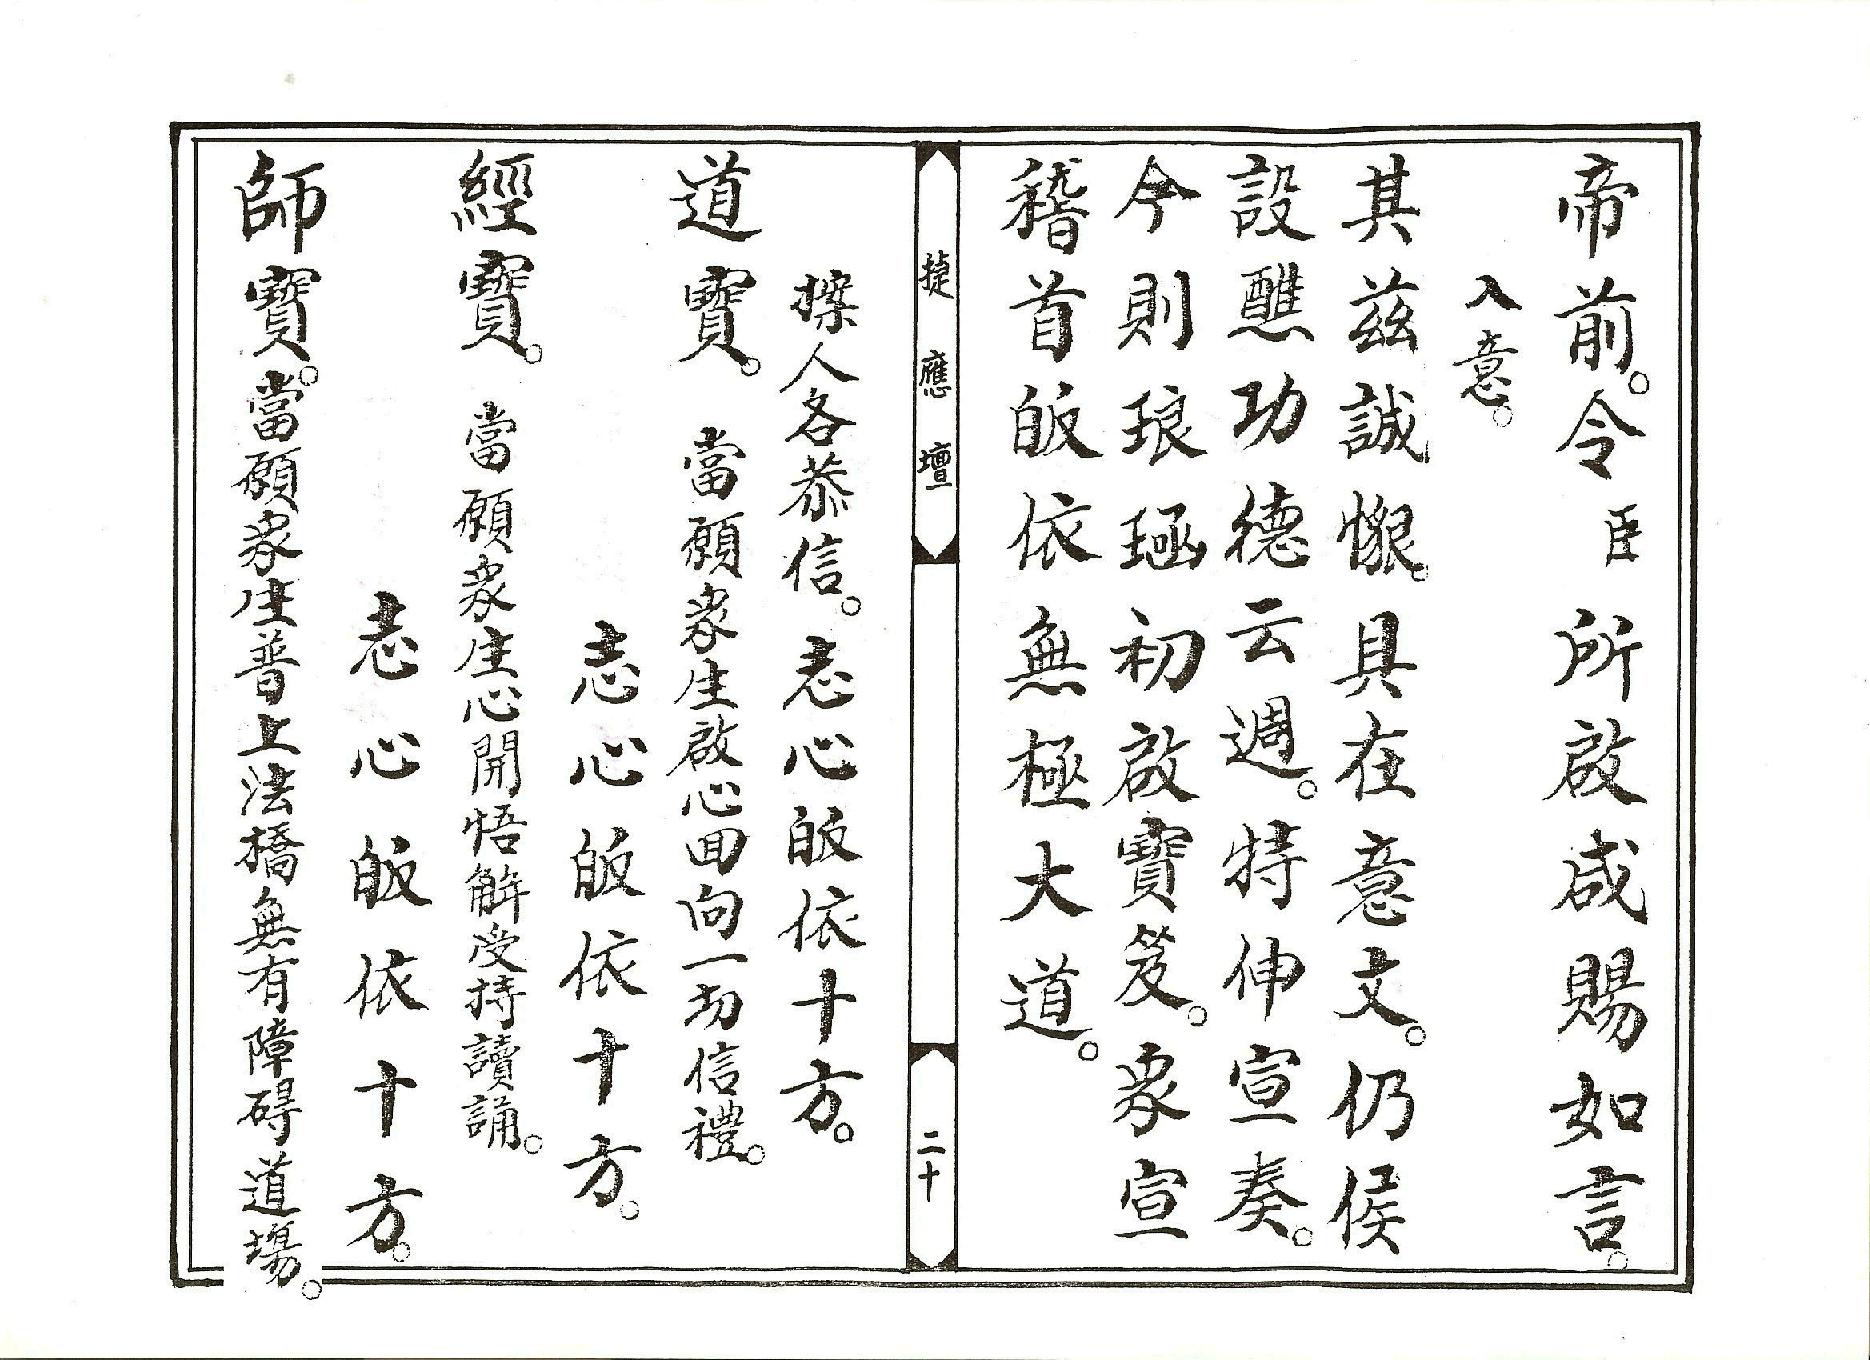 帝前。令臣所啟咸賜如言。
入意。
其茲誠懇。具在意文。仍候
設醮功德云週。特伸宣奏。
今則琅函初啟寶笈。衆宣
稽首皈依無極大道。
捷應壇
二十
人各恭信。志心皈依十方。
道寶。當願衆生啟心回向一切信禮。
志心皈依十方。
經寶。當願衆生心開悟解受持讀誦。
志心皈依十方。
師寶。當願衆生普上法橋無有障碍道場。